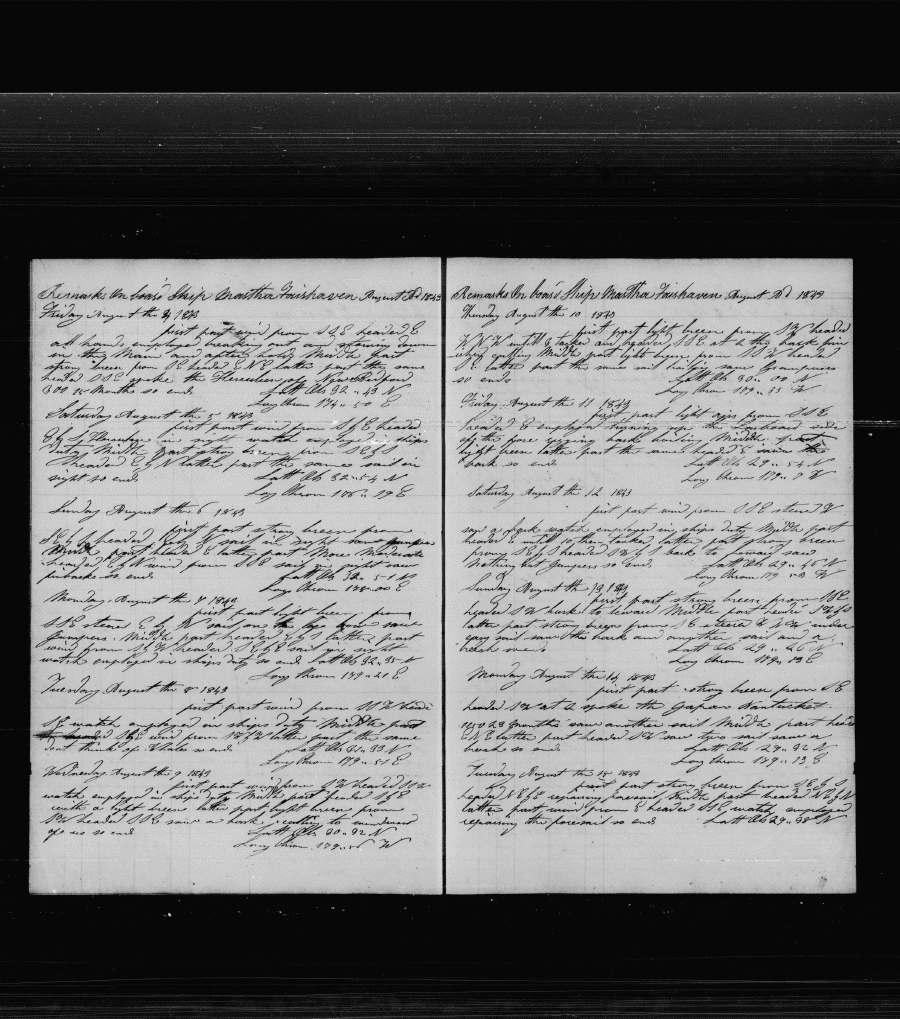 Remarks on board Ship Martha Fairhaven August AD 1843
Friday August the 4 1843
first part wind from SSE headed E
all hands employed breaking out and stowing down
in the Main and after hold Middle part
strong breen from SE headed ENE latter part the same
headed SSE spoke the Herculean of
1300 15 Months so ends Latt Ob 32 .. 43 N
Long Chrom 174 .. 50 E
Saturday August the 5 1843
first part wind from S by E headed
E by S in sight watch employed in ships
duty Middle part strong breen from SE by S
headed E by N latter part the same sail in
sight so ends Latt Ob 32 .. 54 N
Long Chrom 176 .. 19 E
Sunday August the 6 1843
first part strong breen from
SE by S headed sail in sight saw
Middle part headed E latter part More Moderate
headed wind from SSE sail in sight saw
finbacks so ends Latt Ob 32 .. 51 N
Long Chrom 178 .. 00 E
Monday August the 7 1843
first part light breen from
SSE steered E by N sail on the bow saw
Jumpers Middle part headed E by S latter part
wind from headed SE by E sail in sight
watch employed in ships duty so ends Latt Ob 32 .. 35 N
Long Chrom 179 .. 21 E
Tuesday August the 8 1843
first part wind from SSW headed
SE watch employed in ships duty Middle part
wind from latter part the same
dont think of Whales so ends Latt Ob 31 .. 33 N
Long Chrom 179 .. 51 E
Wednesday August the 9 1843
first part wind from SW headed SSE
watch employed in ships duty Middle part headed S by E
with a light breen latter part light breen from
SW headed SSE saw a bark cutting to windward
of us so ends Latt Ob 30 .. 32 N
Long Chrom 179 .. 56 W
Remarks on board Ship Martha Fairhaven August AD 1843
Thursday August the 10 1843
first part light breen from SW headed
WNW untill 6 tacked and headed SSE at 2 the back fin
whale Middle part light breen from SSW headed
SE latter part the same sail in sight saw Grampuses
so ends Latt Ob 30 .. 00 N
Long Chrom 179 .. 33 W
Friday August the 11 1843
first part light airs from SSE
headed E employed the Larboard side
of the fore rigging bark boiling Middle part
light breen latter part the same headed E saw the
bark so ends Latt Ob 29 .. 54 N
Long Chrom 179 .. 9 W
Saturday August the 12 1843
first part wind from SE steered W
saw a bark watch employed in ships duty Middle part
headed E until 10 then tacked latter part strong breen
from SE by S headed SW by S bark to leeward saw
nothing but Jumpers so ends Latt Ob 29 .. 45 N
Long Chrom 179 .. 53 W
Sunday August the 13 1843
first part strong breen from SSE
headed SW bark to leeward Middle part headed
latter part strong breen from SE steered WNW under
easy sail saw the bark and another sail and a
breach so ends Latt Ob 29 .. 26 N
Long Chrom 179 .. 13 E
Monday August the 14 1843
first part strong breen from SE
headed SW at 2 spoke the Japan Nantucket
1450 23 Months saw another sail Middle part headed
ENE latter part headed SW saw two sail saw a
breach so ends Latt Ob 29 .. 32 N
Long Chrom 179 .. 13 E
Tuesday August the 15 1843
first part strong breen from SE by S
headed repairing foresail Middle part headed
latter part wind from E headed SSE watch employed
repairing the foresail so ends Latt Ob 29 .. 38 N